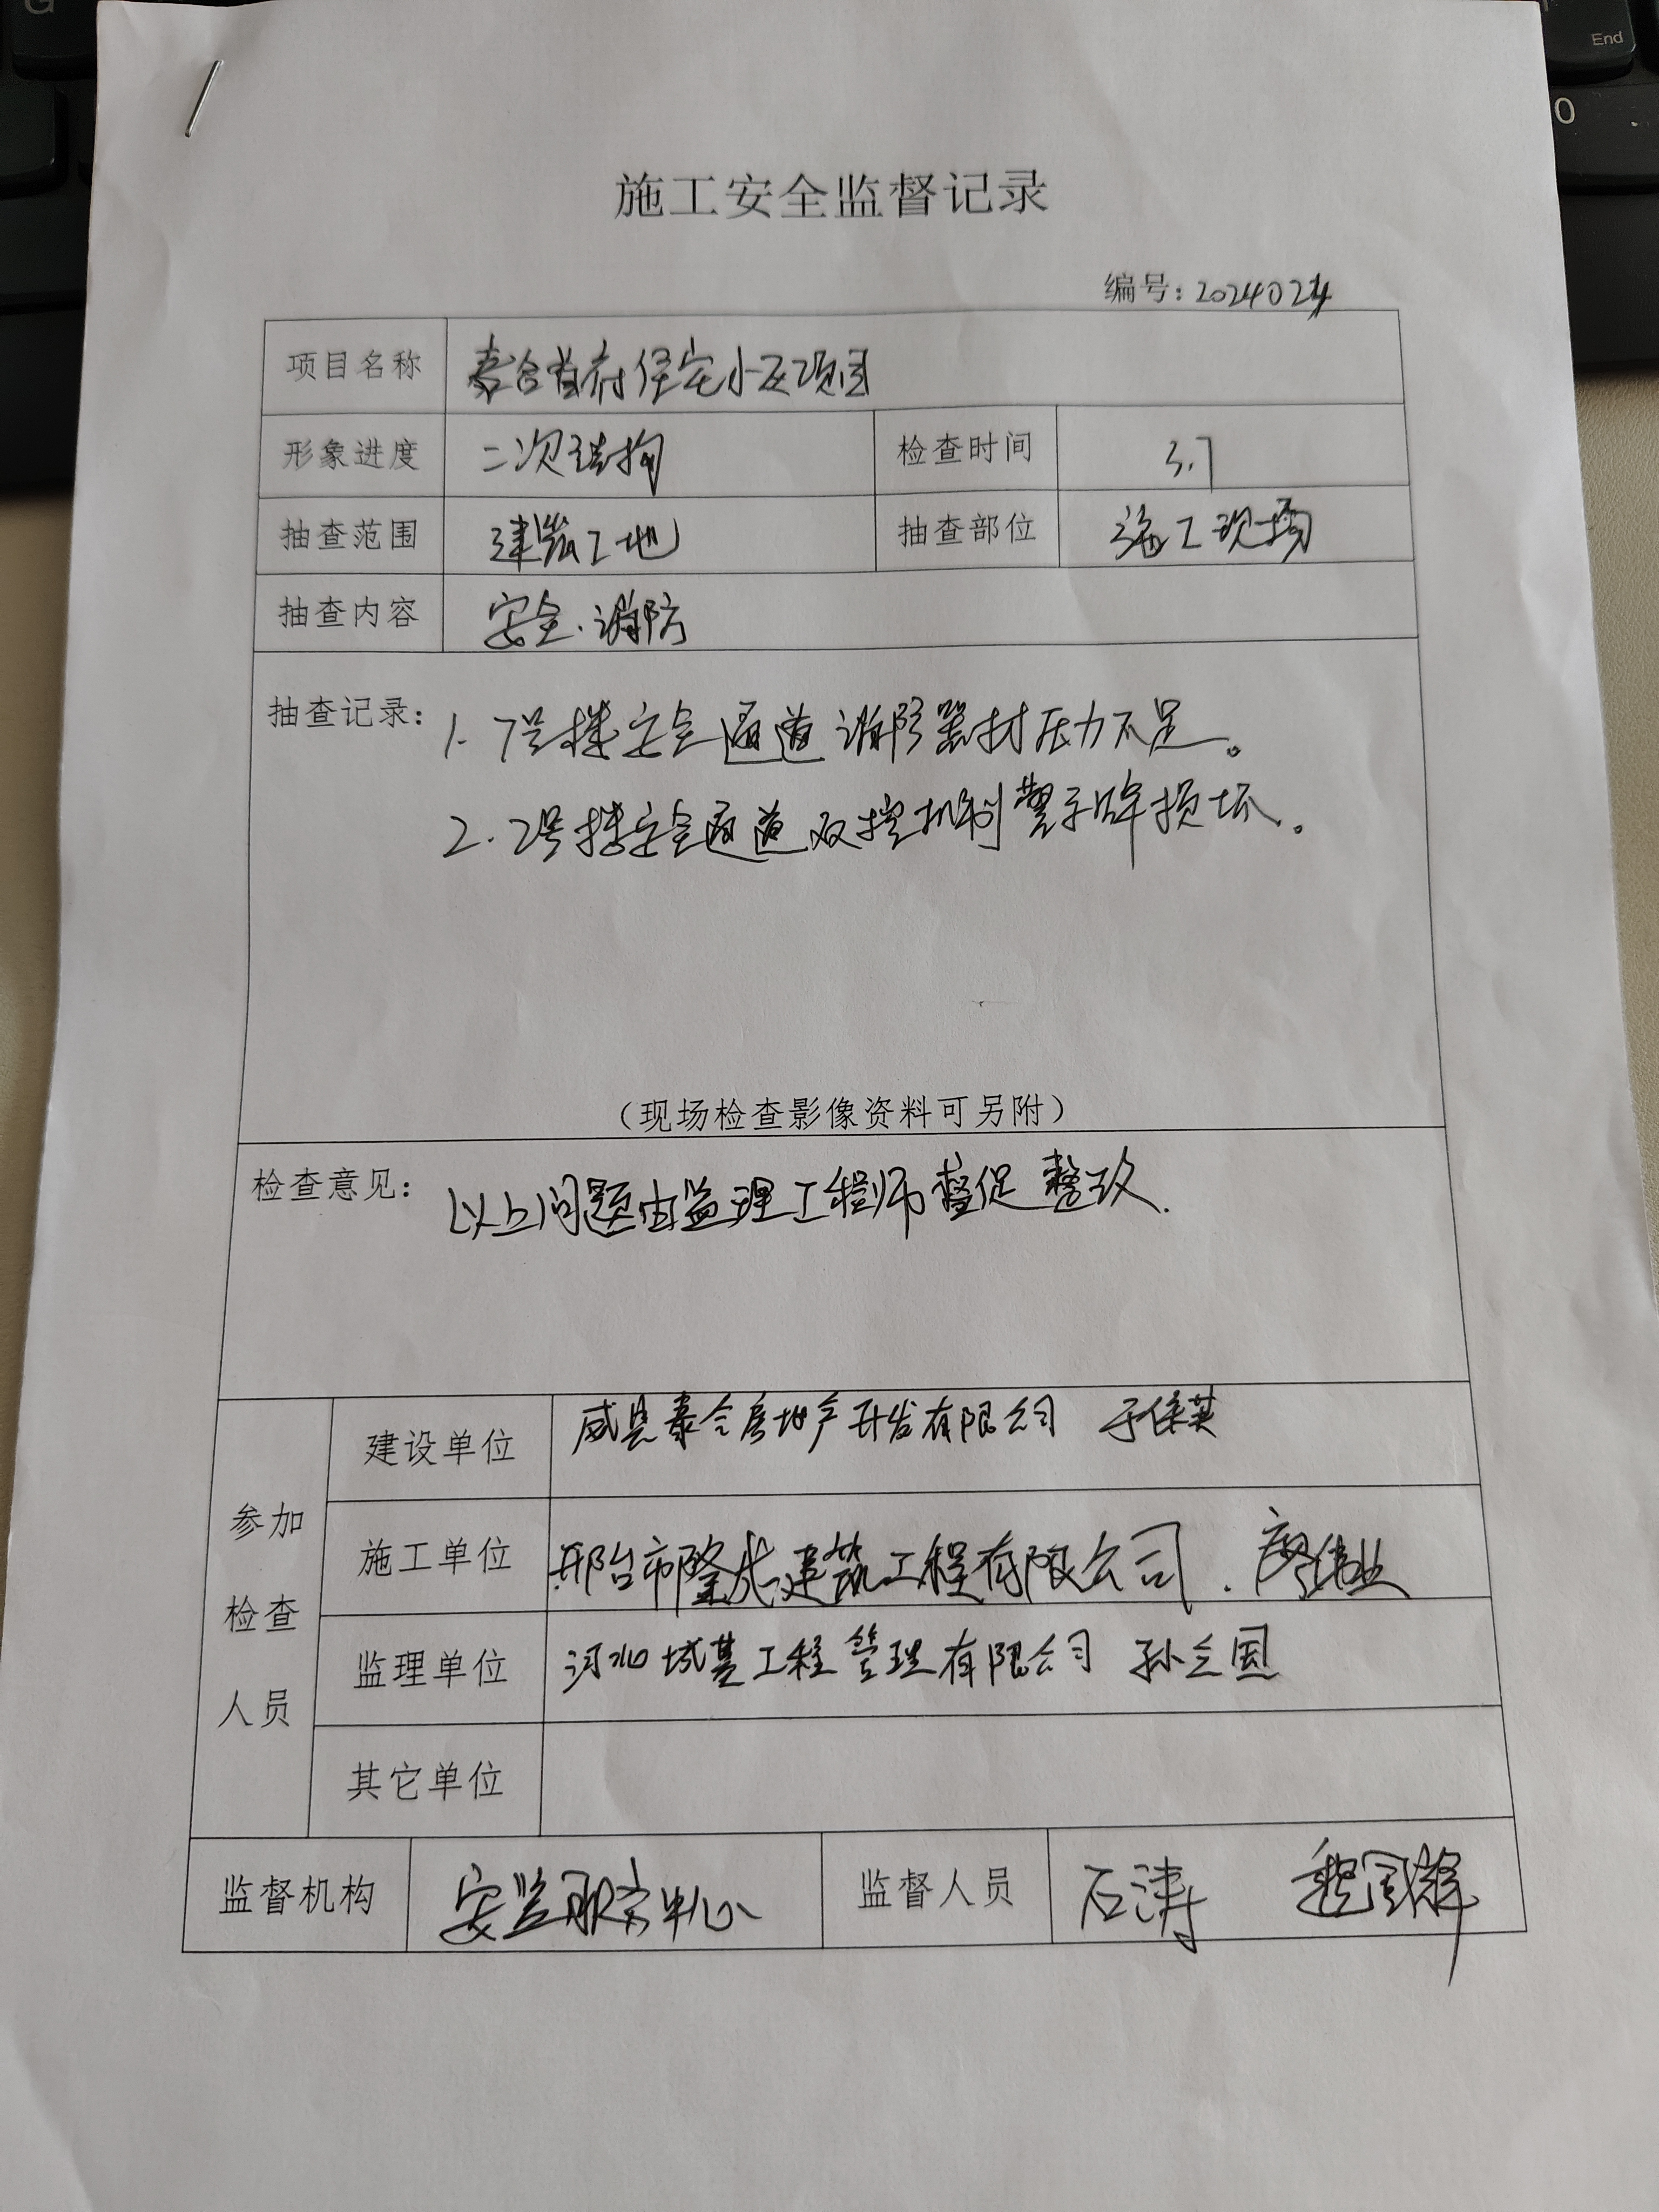 施工安全监督记录
编号：2024024
项目名称 泰合首府住宅小区项目
形象进度 二次结构 检查时间 3.7
抽查范围 建筑工地 抽查部位 施工现场
抽查内容 安全.消防
抽查记录： 1. 7号楼安全通道消防器材压力不足。
2. 2号楼安全通道双控机制警示牌损坏。
（现场检查影像资料可另附）
检查意见： 以上问题由监理工程师督促整改.
参加检查人员
建设单位 威县泰合房地产开发有限公司 于保英
施工单位 邢台市隆成建筑工程有限公司. 廖伟业
监理单位 河北城基工程管理有限公司 孙立国
其它单位
监督机构 安监服务中心 监督人员 石涛
End
0
G